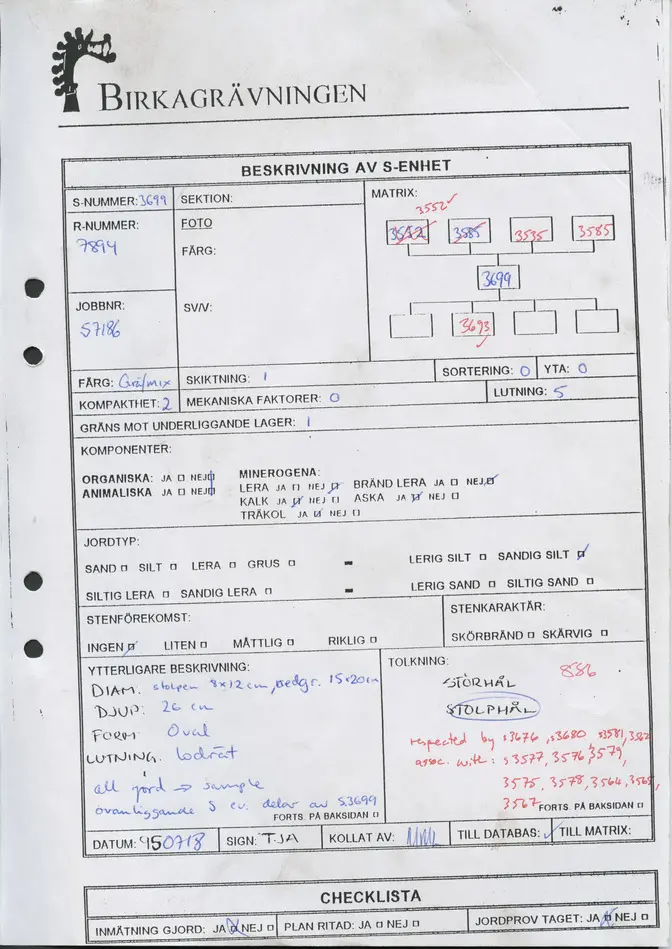 BIRKAGRÄVNINGEN
BESKRIVNING AV S-ENHET
S-NUMMER: 3699
SEKTION:
MATRIX:
3552
R-NUMMER:
7894
FOTO
3552 3585 3535 3585
FÄRG:
3699
JOBBNR:
57186
SV/V:
3693
FÄRG: Grå/mix
SKIKTNING: 1
SORTERING: 0
YTA: 0
KOMPAKTHET: 2
MEKANISKA FAKTORER: 0
LUTNING: 5
GRÄNS MOT UNDERLIGGANDE LAGER: 1
KOMPONENTER:
ORGANISKA: JA NEJ
ANIMALISKA JA NEJ
MINEROGENA:
LERA JA NEJ BRÄND LERA JA NEJ
KALK JA NEJ ASKA JA NEJ
TRÄKOL JA NEJ
JORDTYP:
SAND SILT LERA GRUS - LERIG SILT SANDIG SILT
SILTIG LERA SANDIG LERA - LERIG SAND SILTIG SAND
STENFÖREKOMST:
INGEN LITEN MÅTTLIG RIKLIG
STENKARAKTÄR:
SKÖRBRÄND SKÄRVIG
YTTERLIGARE BESKRIVNING:
DIAM. stolpen 8x12 cm, nedgr. 15x20cm
DJUP: 26 cm
FORM: Oval
LUTNING: lodrät
all jord → sample
ovanliggande S ev. delar av S3699
FORTS. PÅ BAKSIDAN
TOLKNING:
886
STÖRHÅL
STOLPHÅL
respected by s3676, s3680, s3581, 3582
assoc. with: s3577, 3576, 3579,
3575, 3578, 3564, 3565,
3567
FORTS. PÅ BAKSIDAN
DATUM: 950718
SIGN: TJA
KOLLAT AV:
TILL DATABAS:
TILL MATRIX:
CHECKLISTA
INMÄTNING GJORD: JA NEJ
PLAN RITAD: JA NEJ
JORDPROV TAGET: JA NEJ